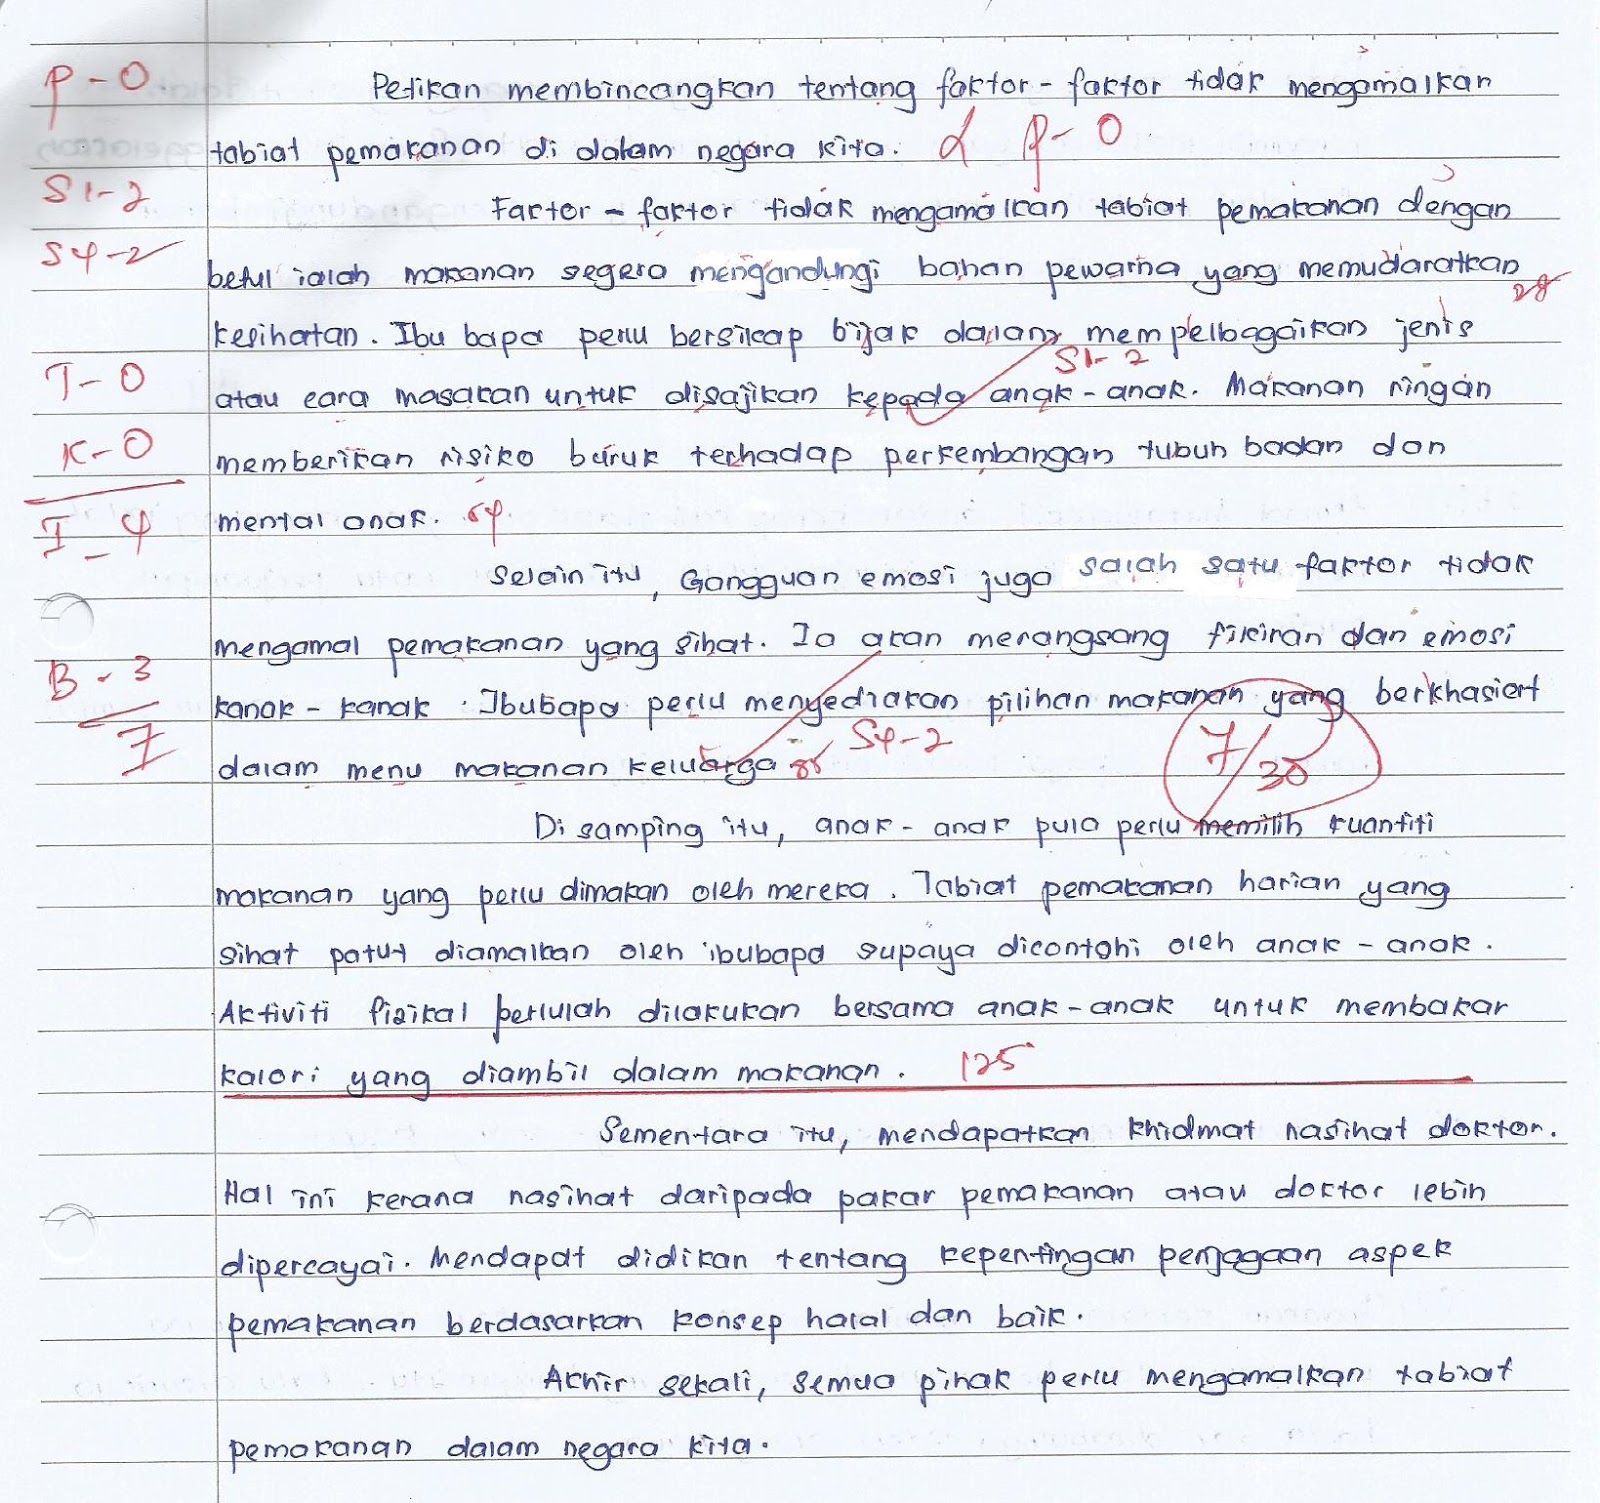 P - 0
Petikan membincangkan tentang faktor - faktor tidak mengamalkan
tabiat pemakanan di dalam negara kita. P - 0
S1 - 2
Factor - faktor tidak mengamalkan tabiat pemakanan dengan
S4 - 2
betul ialah makanan segera mengandungi bahan pewarna yang memudaratkan
28
kesihatan. Ibu bapa perlu bersikap bijak dalam mempelbagaikan jenis
S1 - 2
T - 0
atau cara masakan untuk disajikan kepada anak - anak. Makanan ringan
K - 0
memberikan risiko buruk terhadap perkembangan tubuh badan dan
I - 4
mental anak. 54
Selain itu, Gangguan emosi juga salah satu faktor tidak
mengamal pemakanan yang sihat. Ia akan merangsang fikiran dan emosi
B - 3
kanak - kanak. Ibubapa perlu menyediakan pilihan makanan yang berkhasiat
7
dalam menu makanan keluarga S4 - 2
7/30
Di samping itu, anak - anak pula perlu memilih kuantiti
makanan yang perlu dimakan oleh mereka. Tabiat pemakanan harian yang
sihat patut diamalkan oleh ibubapa supaya dicontohi oleh anak - anak.
Aktiviti fizikal perlulah dilakukan bersama anak - anak untuk membakar
kalori yang diambil dalam makanan. 125
Sementara itu, mendapatkan khidmat nasihat doktor.
Hal ini kerana nasihat daripada pakar pemakanan atau doktor lebih
dipercayai. Mendapat didikan tentang kepentingan penjagaan aspek
pemakanan berdasarkan konsep halal dan baik.
Akhir sekali, semua pihak perlu mengamalkan tabiat
pemakanan dalam negara kita.